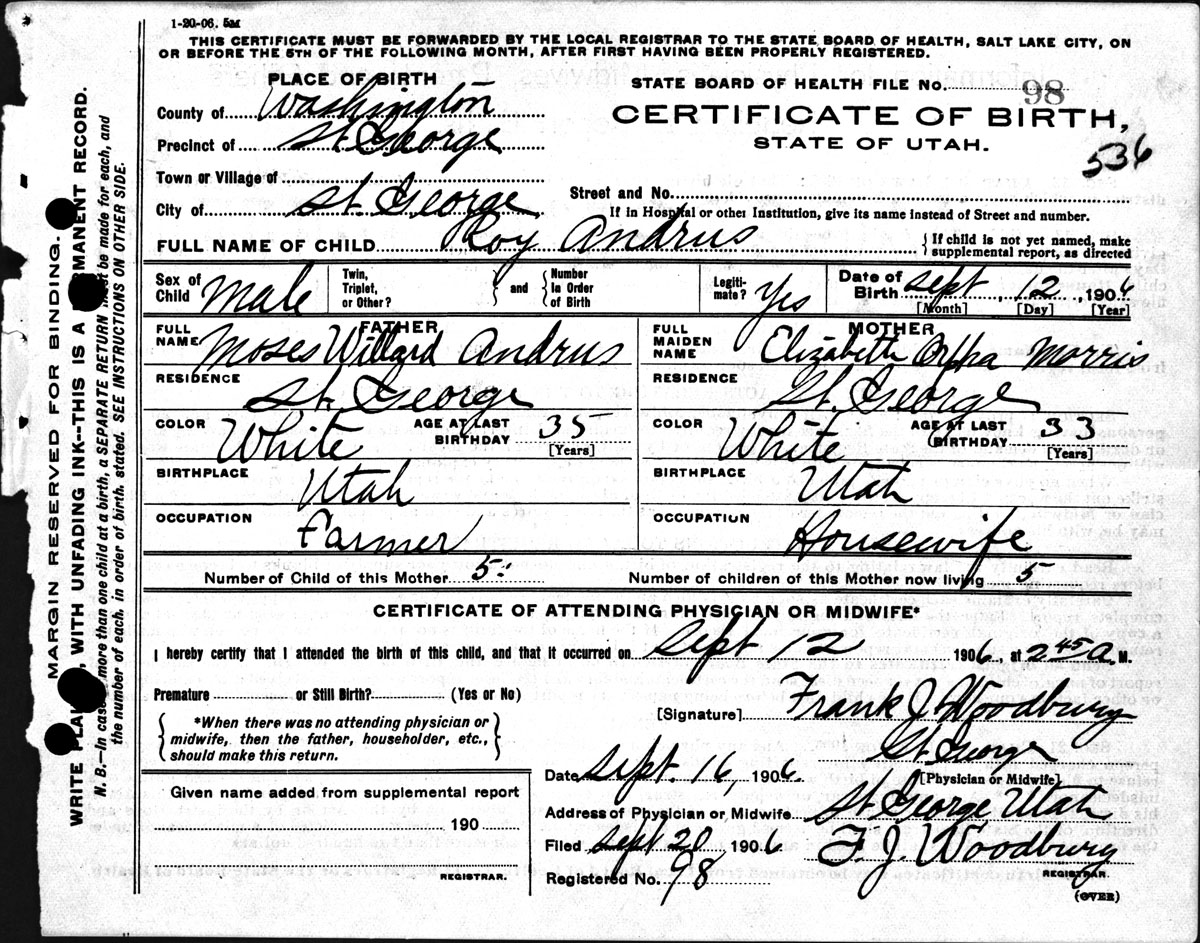 1-20-06. 5M
THIS CERTIFICATE MUST BE FORWARDED BY THE LOCAL REGISTRAR TO THE STATE BOARD OF HEALTH, SALT LAKE CITY, ON
OR BEFORE THE 5TH OF THE FOLLOWING MONTH, AFTER FIRST HAVING BEEN PROPERLY REGISTERED.
PLACE OF BIRTH
STATE BOARD OF HEALTH FILE No. 98
County of Washington
CERTIFICATE OF BIRTH,
Precinct of St George
STATE OF UTAH.
536
Town or Village of
Street and No.
City of St. George
If in Hospital or other Institution, give its name instead of Street and number.
FULL NAME OF CHILD Roy Andrus { If child is not yet named, make
supplemental report, as directed
Sex of
Child Male
Twin,
Triplet,
or Other? } and { Number
in Order
of Birth
Legiti-
mate? Yes
Date of
Birth Sept, 12, 1906
[Month] [Day] [Year]
FATHER
FULL
NAME Moses Willard Andrus
MOTHER
FULL
MAIDEN
NAME Elizabeth Orpha Morris
RESIDENCE St. George
RESIDENCE St. George
COLOR White AGE AT LAST
BIRTHDAY 35
[Years]
COLOR White AGE AT LAST
BIRTHDAY 33
[Years]
BIRTHPLACE Utah
BIRTHPLACE Utah
OCCUPATION Farmer
OCCUPATION Housewife
Number of Child of this Mother 5:
Number of children of this Mother now living 5
CERTIFICATE OF ATTENDING PHYSICIAN OR MIDWIFE*
I hereby certify that I attended the birth of this child, and that it occurred on Sept 12 1906, at 2 45 a. M.
Premature or Still Birth? (Yes or No)
{ *When there was no attending physician or
midwife, then the father, householder, etc.,
should make this return. }
[Signature] Frank J. Woodbury
St George
Date Sept. 16, 1906
[Physician or Midwife]
Given name added from supplemental report
190
REGISTRAR.
Address of Physician or Midwife St George Utah
Filed Sept 20 1906 F. J. Woodbury
REGISTRAR.
Registered No. 98
(OVER)
MARGIN RESERVED FOR BINDING.
WRITE PLAINLY, WITH UNFADING INK—THIS IS A PERMANENT RECORD.
N. B.—In case of more than one child at a birth, a SEPARATE RETURN must be made for each, and
the number of each, in order of birth, stated. SEE INSTRUCTIONS ON OTHER SIDE.